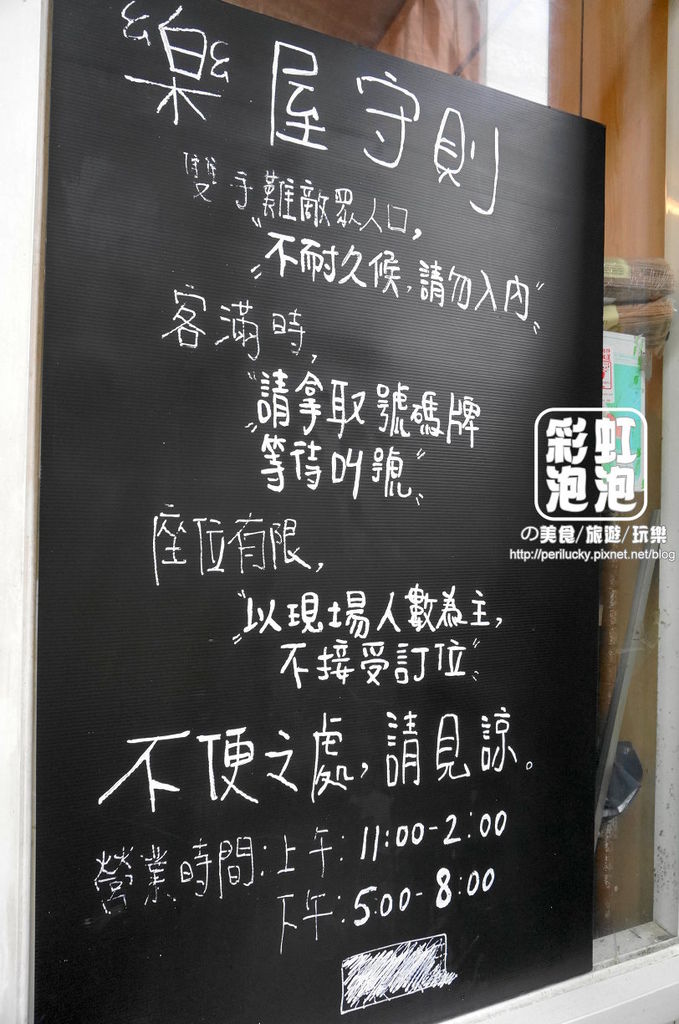 樂屋守則
雙手難敵眾人口,
"不耐久候,請勿入內"
客滿時,
"請拿取號碼牌
等待叫號"
座位有限,
"以現場人數為主,
不接受訂位"
不便之處,請見諒。
營業時間:上午:11:00-2:00
下午:5:00-8:00
彩虹
泡泡
の美食/旅遊/玩樂
http://perilucky.pixnet.net/blog